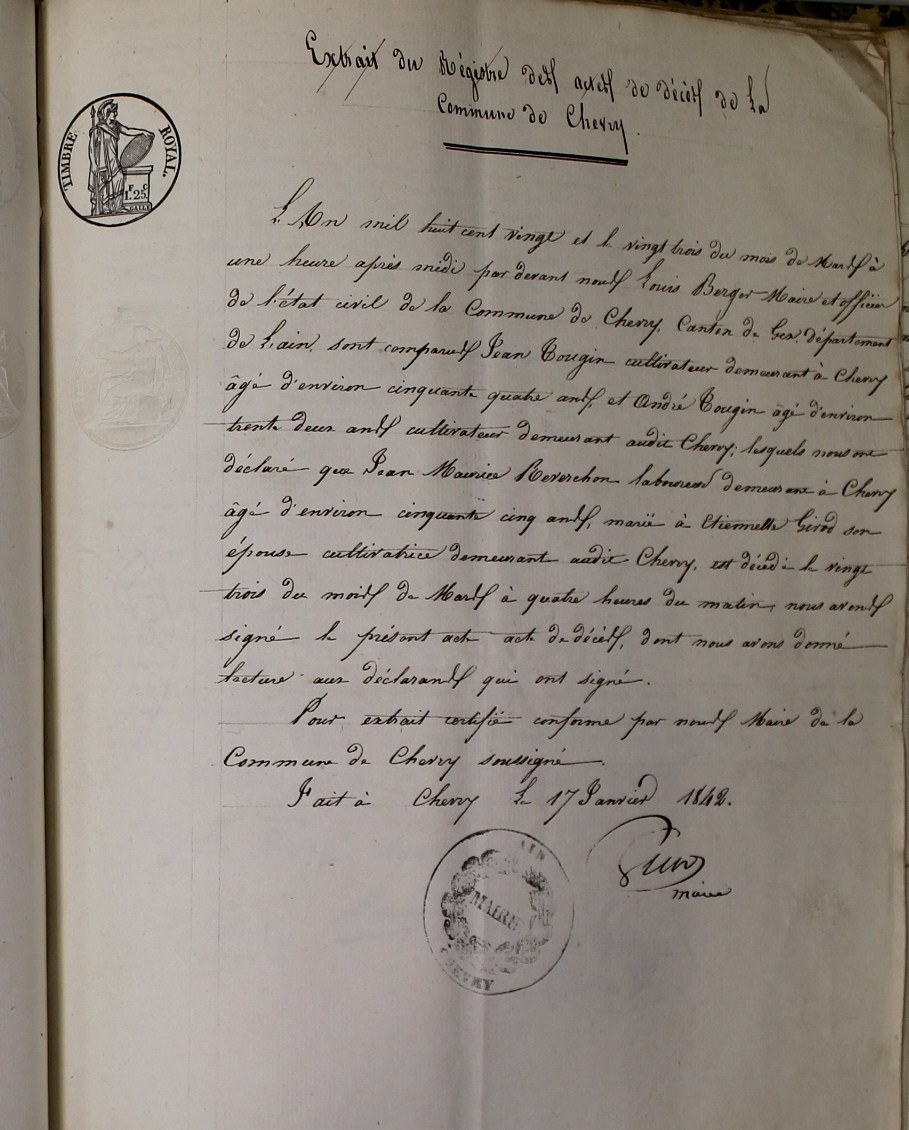 Extrait du Régistre des actes de décès de la
Commune de Chevry.
TIMBRE ROYAL.
F. C
1.25
L'An mil huit cent vingt et le vingt trois du mois de Mars à
une heure après midi par devant nous Louis Berger Maire et officier
de l'état civil de la Commune de Chevry, Canton de Gex, département
de L'ain, sont comparus Jean Tougin cultivateur demeurant à Chevry
âgé d'environ cinquante quatre ans, et André Tougin âgé d'environ
trente deux ans cultivateur demeurant audit Chevry; lesquels nous ont
déclaré que Jean Maurice Reverchon laboureur demeurant à Chevry
âgé d'environ cinquante cinq ans, marié à Etiennette Girod son
épouse cultivatrice demeurant audit Chevry, est décédé le vingt
trois du mois de Mars à quatre heures du matin, nous avons
signé le présent acte acte de décès, dont nous avons donné
lecture aux déclarans qui ont signé.
Pour extrait certifié conforme par nous Maire de la
Commune de Chevry soussigné.
Fait à Chevry le 17 Janvier 1842.
maire
AIN
MAIRIE
CHEVRY